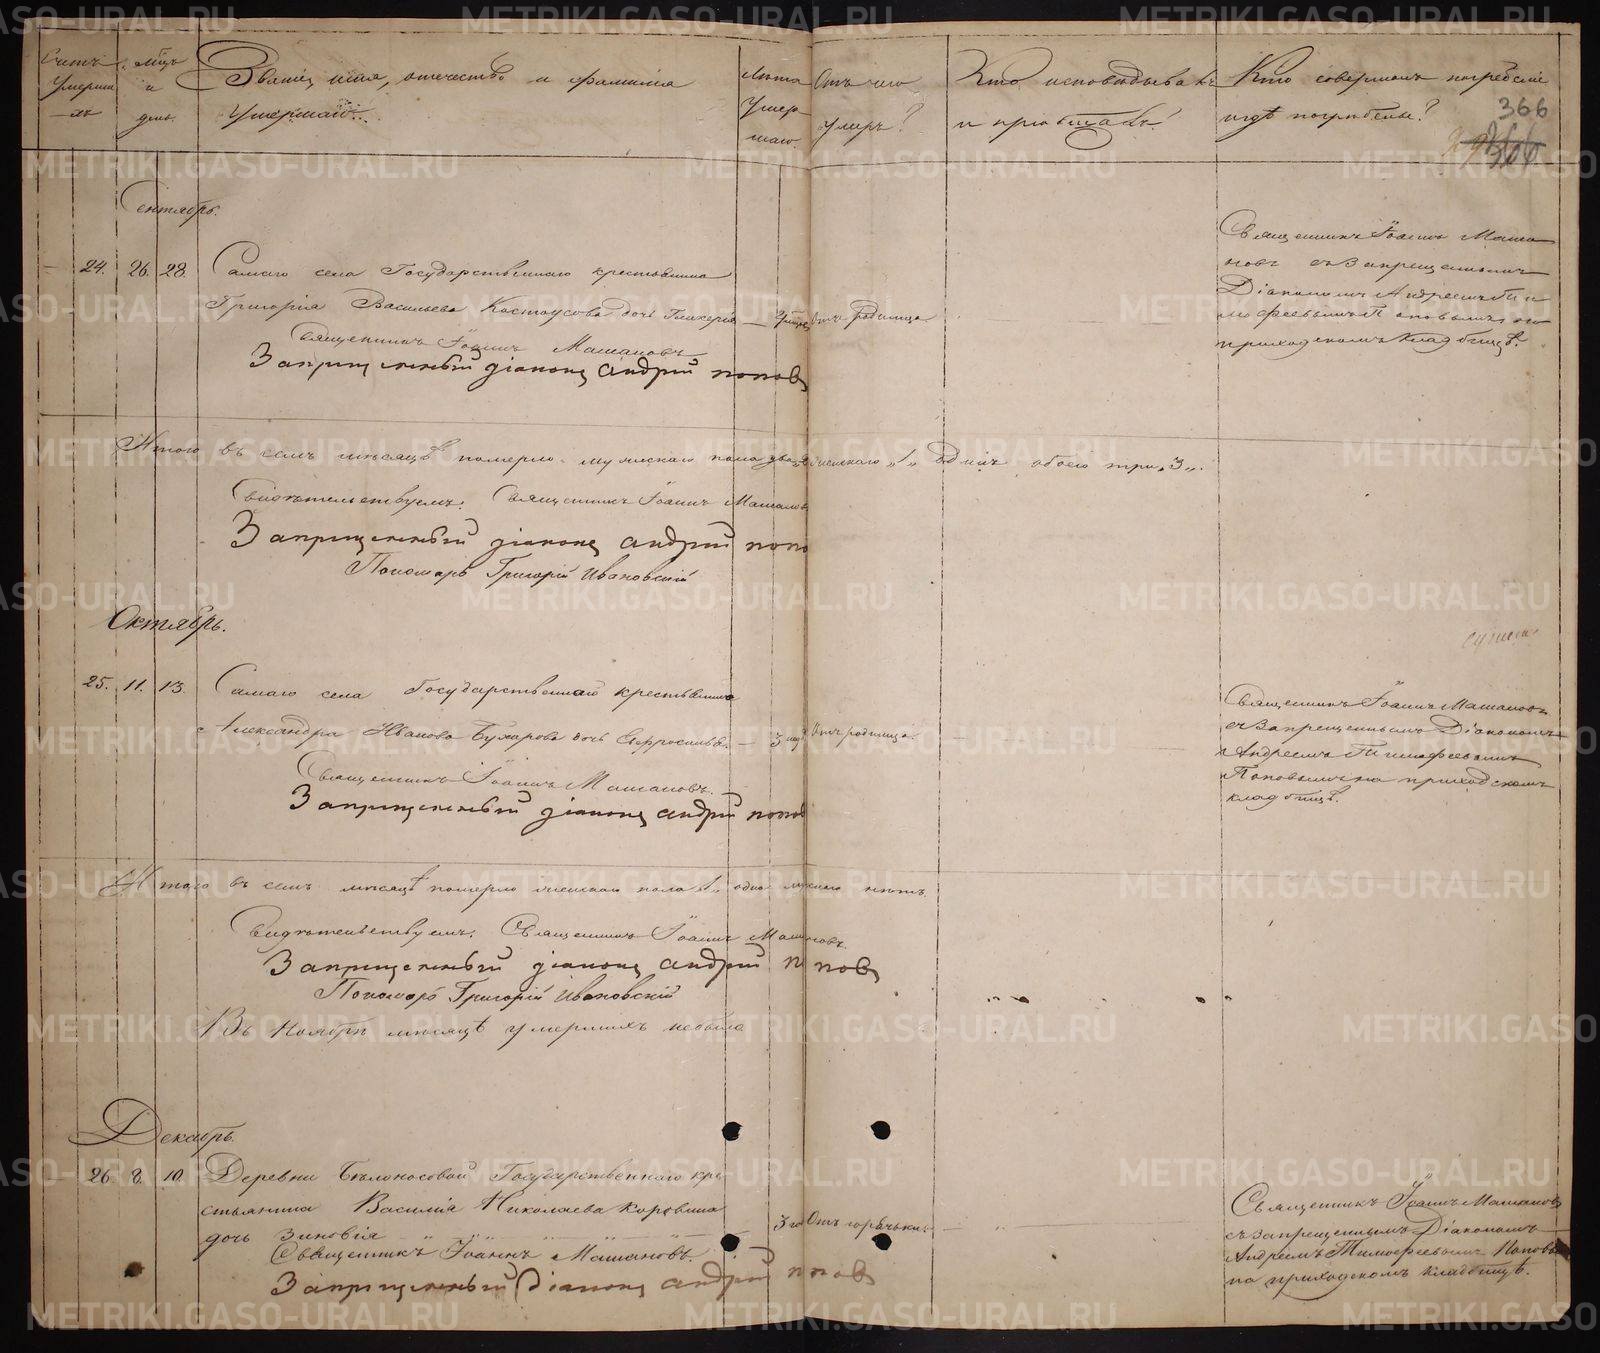 Счетъ умерши-хъ
Мѣцъ и день.
Званіе, имя, отечество и фамилія умершаго.
Лѣта умер-шаго
Отъ чего умеръ?
Кто исповѣдывалъ и пріобщалъ?
Кто совершалъ погребеніе и гдѣ погребены?
366
Сентябрь.
24. 26. 28. Самаго села Государственнаго крестьянина
Григорія Васильева Костоусова дочь Гликерія
Отъ родимца
Священникъ Іоаннъ Машановъ
Запрещенный діаконъ андрей попов
Священникъ Іоаннъ Маша
новъ съ запрещеннымъ
Діакономъ Андреемъ Ти
мофеевымъ Поповымъ на
приходскомъ кладбищѣ.
Итого въ семъ мѣсяцѣ померло мужескаго пола два женскаго „1„ одна обоего три „3„.
Свидѣтельствуемъ: Священникъ Іоаннъ Машанов
Запрещенный діаконъ андрей попо
Пономарь Григорій Ивановскій
Октябрь.
25. 11. 13. Самаго села Государственнаго крестьянина
Александра Иванова Бухарова дочь Ефросинья
3 Отъ родимца
Священникъ Іоаннъ Машановъ.
Запрещенный діаконъ андрей попов
Священникъ Іоаннъ Машановъ
съ запрещеннымъ Діакономъ
Андреемъ Тимофеевымъ
Поповымъ на приходскомъ
кладбищѣ.
Итого въ семъ мѣсяцѣ померло женскаго пола 1. одна мужескаго нѣтъ.
Свидѣтельствуемъ: Священникъ Іоаннъ Машановъ.
Запрещенный діаконъ андрей попов
Пономарь Григорій Ивановскій
Въ Ноябрѣ мѣсяцѣ умершихъ небыло
Декабрь.
26. 8. 10. Деревни Бѣлоносовой Государственнаго кре
стьянина Василія Николаева Коровина
дочь Зиновія
3 го Отъ горячьки
Священникъ Іоаннъ Машановъ.
Запрещенный діаконъ андрей попов
Священникъ Іоаннъ Машановъ
съ запрещеннымъ Діакономъ
Андреемъ Тимофеевымъ Поповы
на приходскомъ кладбищѣ.
METRIKI.GASO-URAL.RU